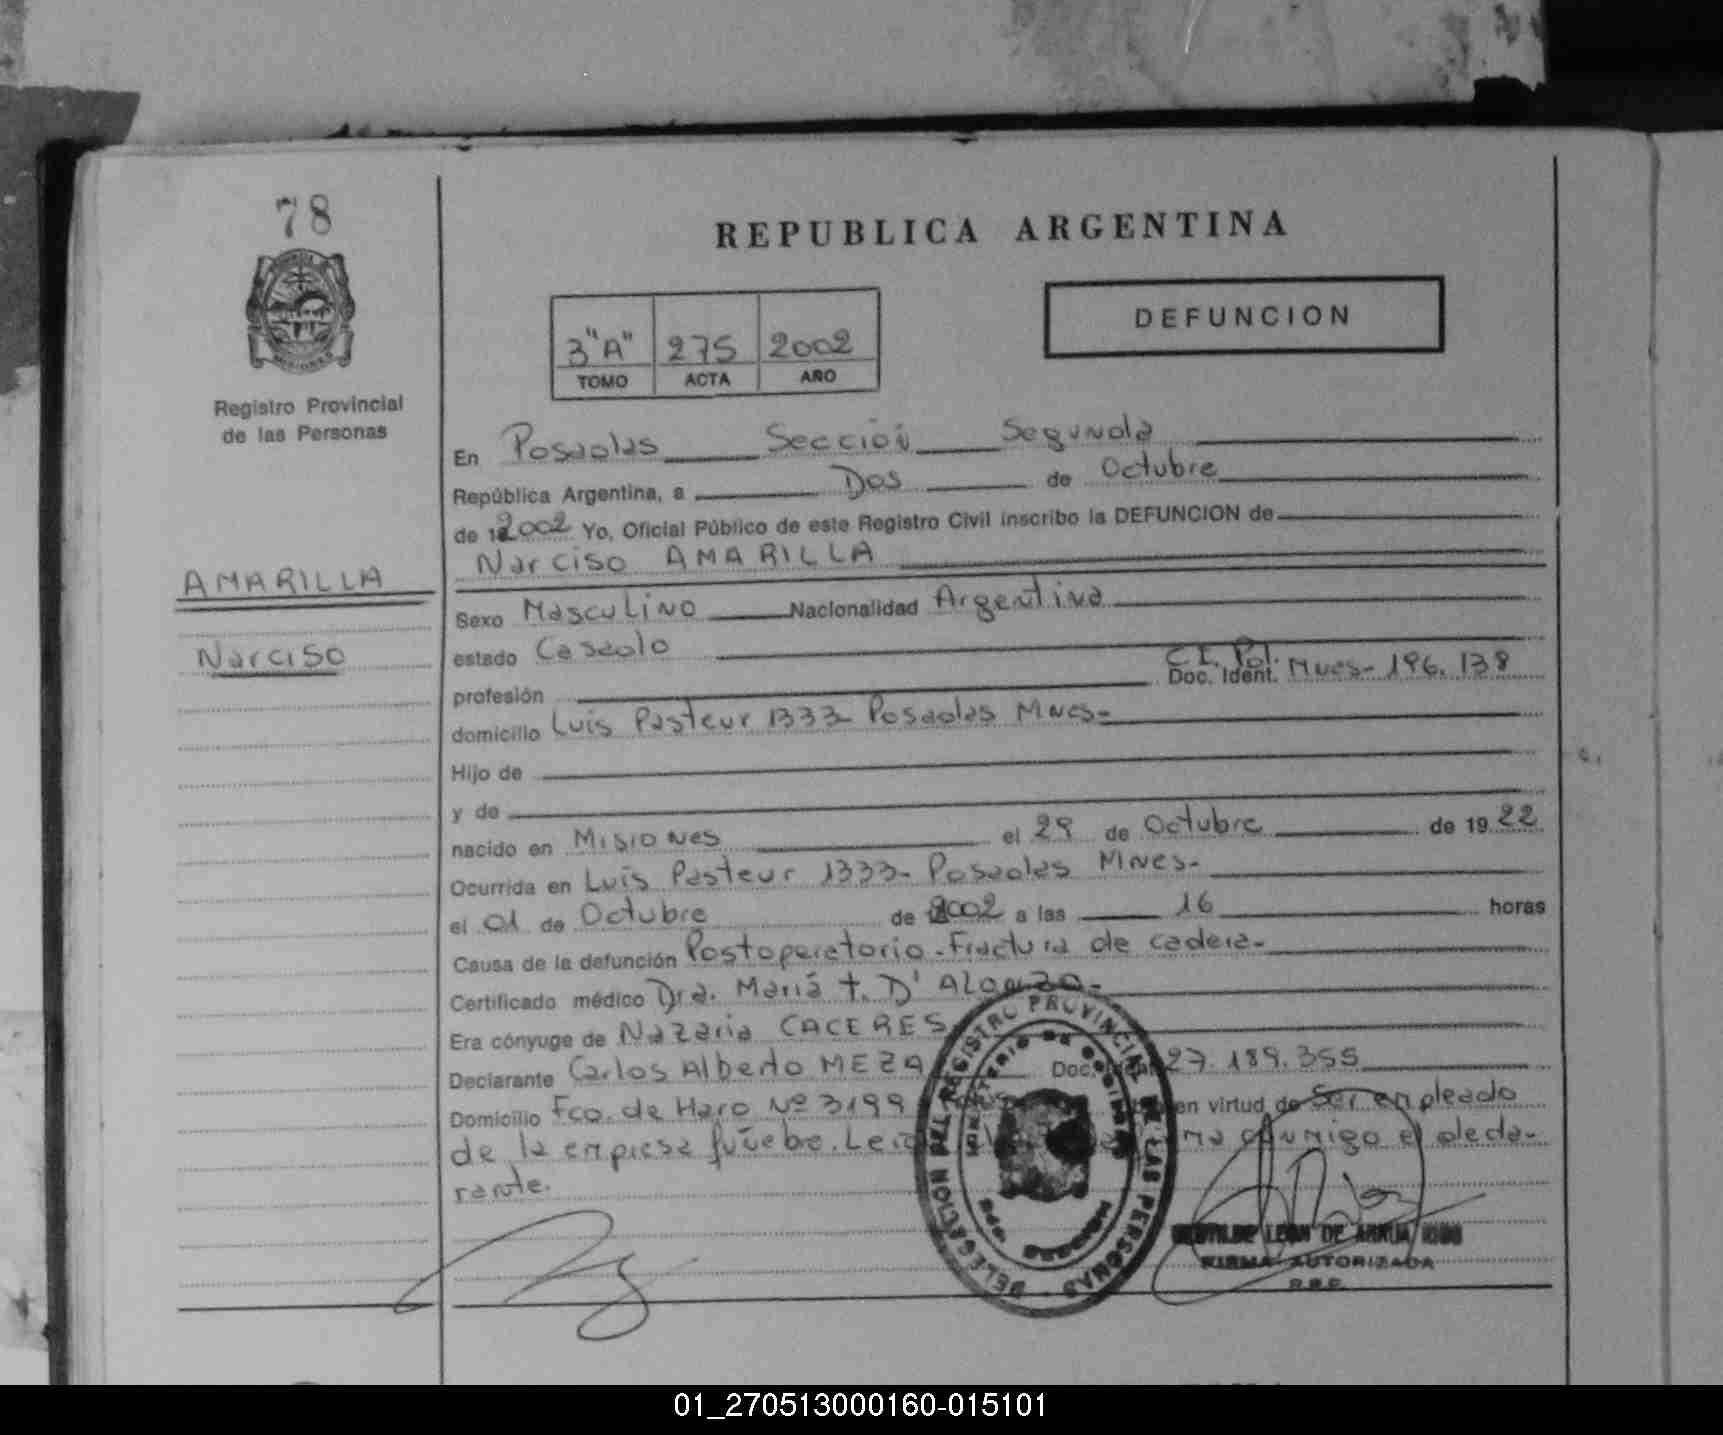 78
REPUBLICA ARGENTINA
DEFUNCION
3"A" 275 2002
TOMO ACTA AÑO
Registro Provincial
de las Personas
En Posadas Sección Segunda
República Argentina, a Dos de Octubre
de 2002 Yo, Oficial Público de este Registro Civil inscribo la DEFUNCION de
Narciso AMARILLA
AMARILLA
Narciso
Sexo Masculino Nacionalidad Argentina
estado Casado
profesión C.I. Pol. Doc. Ident. Mnes- 196.138
domicilio Luis Pasteur 1333- Posadas Mnes-
Hijo de
y de
nacido en Misiones el 29 de Octubre de 1922
Ocurrida en Luis Pasteur 1333- Posadas Mnes-
el 01 de Octubre de 2002 a las 16 horas
Causa de la defunción Postoperatorio-Fractura de cadera-
Certificado médico Dra. Maria t. D' Alonzo-
Era cónyuge de Nazaria CACERES
Declarante Carlos Alberto MEZA Doc. 27.189.355
Domicilio Fco. de Haro Nº 3199 en virtud de Ser empleado
de la empresa fúnebre. conmigo el decla-
rante.
DELEGACION DEL REGISTRO PROVINCIAL DE LAS PERSONAS
MINISTERIO DE GOBIERNO
LEON DE
FIRMA AUTORIZADA
R.P.P.
01_270513000160-015101